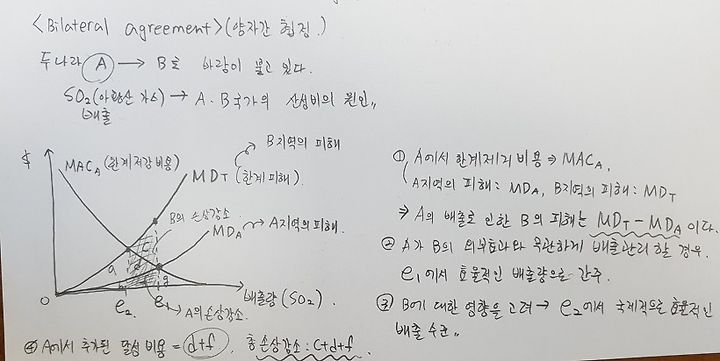 <Bilateral agreement> (양자간 협정.)
두나라 A → B로 바람이 불고 있다.
SO₂(아황산 가스) → A.B국가의 산성비의 원인,,
배출
$
MACA (한계저감비용)
B지역의 피해
MDT (한계피해).
B의 손상감소.
MDA → A지역의 피해.
a
c
d
f
g
0
e₂
e₁
배출량(SO₂).
A의 손상감소.
① A에서 한계제거비용 ⇒ MACA,
A지역의 피해: MDA, B지역의 피해: MDT
⇒ A의 배출로 인한 B의 피해는 MDT - MDA 이다.
② A가 B의 외부효과와 무관하게 배출관리 할 경우.
e₁에서 효율적인 배출량으로 간주.
③ B에 대한 영향을 고려 → e₂에서 국제적으로 효율적인
배출 수준,,
④ A에서 추가된 달성 비용 = d+f, 총손상감소: c+d+f